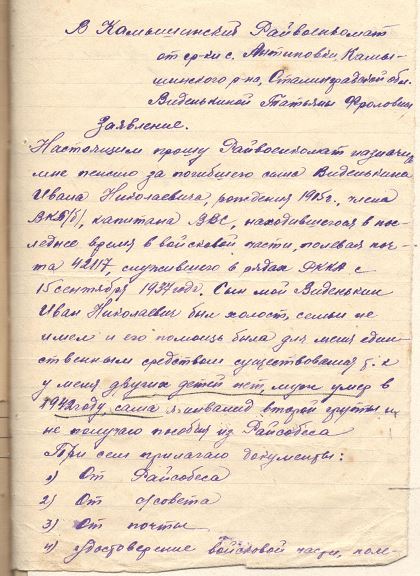 В Камышинский Райвоенкомат
от гр-ки с. Антиповки Камы-
шинского р-на, Сталинградской обл.
Виденькиной Татьяны Фроловны
Заявление.
Настоящим прошу Райвоенкомат назначить
мне пенсию за погибшего сына Виденькина
Ивана Николаевича, рождения 1915г., члена
ВКП/б/, капитана ВВС, находившегося в пос-
леднее время в войсковой части, полевая поч-
та 42117, служившего в рядах РККА с
15 сентября 1937 года. Сын мой Виденькин
Иван Николаевич был холост, семьи не
имел и его помощь была для меня един-
ственным средством существования т. к
у меня других детей нет, муж умер в
1942 году, сама инвалид второй группы и
не получаю пособия из Райсобеса
При сем прилагаю документы:
1) От Райсобеса
2) От с/совета
3) От почты
4) Удостоверение войсковой части, поле-